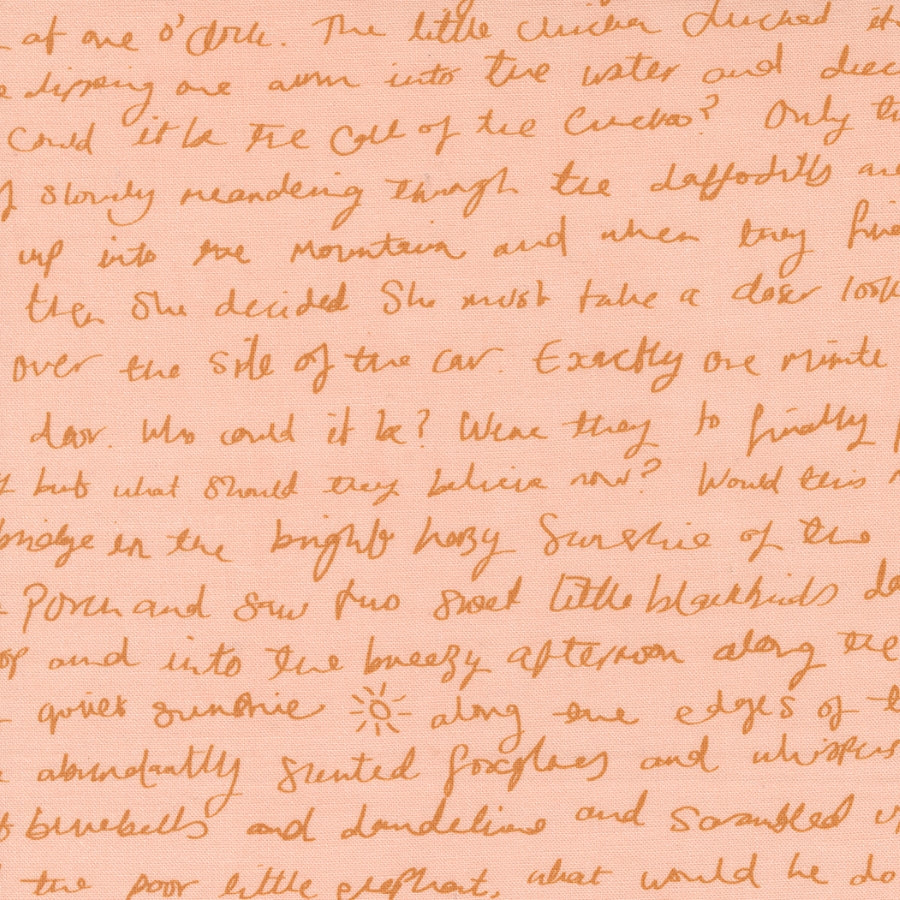 at one o'clock. The little chicken clucked it
dipping one arm into the water and
Could it be the call of the Cuckoo? Only
slowly meandering through the daffodills are
up into the mountain and when they
then she decided she must take a closer look
over the side of the car. Exactly one minute
door. Who could it be? Were they to finally
but what should they believe now? Would this
bridge in the bright hazy sunshine of the
Porch and saw two sweet little blackbirds
and into the breezy afternoon along the
quiet sunshine along the edges of
abundantly scented foxgloves and whispers
bluebells and dandelions and scrambled
the poor little elephant, what would he do